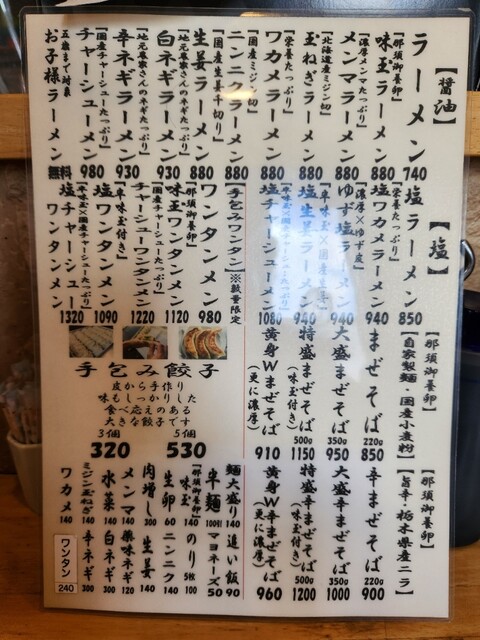 【醤油】
ラーメン 740
「那須御養卵」
味玉ラーメン 880
「濃厚メンマたっぷり」
メンマラーメン 880
「北海道産ミジン切」
玉ねぎラーメン 880
「栄養たっぷり」
ワカメラーメン 880
「国産ミジン切」
ニンニクラーメン 880
「国産生姜千切り」
生姜ラーメン 880
「地元農家さんのネギたっぷり」
白ネギラーメン 930
「地元農家さんのネギたっぷり」
辛ネギラーメン 930
「国産チャーシューたっぷり」
チャーシューメン 980
五歳まで対象
お子様ラーメン 無料
【塩】
塩ラーメン 850
「栄養たっぷり」
塩ワカメラーメン 940
「濃厚×ゆず皮」
ゆず塩ラーメン 940
「半味玉×国産生姜」
塩生姜ラーメン 940
「半味玉×国産チャーシューたっぷり」
塩チャーシューメン 1080
【手包みワンタン】※数量限定
ワンタンメン 980
「那須御養卵」
味玉ワンタンメン 1120
「国産チャーシューたっぷり」
チャーシューワンタンメン 1220
「半味玉付き」
塩ワンタンメン 1090
「半味玉×国産チャーシューたっぷり」
塩チャーシューワンタンメン 1320
手包み餃子
皮から手作り
味もしっかりした
食べ応えのある
大きな餃子です
3個 5個
320 530
【那須御養卵】
【自家製麺・国産小麦粉】
まぜそば 220g 850
大盛まぜそば 350g 950
特盛まぜそば(味玉付き) 500g 1150
黄身Wまぜそば(更に濃厚) 910
【那須御養卵】
【旨辛・栃木県産ニラ】
辛まぜそば 220g 900
大盛辛まぜそば 350g 1000
特盛辛まぜそば(味玉付き) 500g 1200
黄身W辛まぜそば(更に濃厚) 960
麺大盛り 140
半麺 100引
「那須御養卵」
味玉 140
生卵 60
肉増し 300
メンマ 140
水菜 140
ミジン玉ねぎ 140
ワカメ 140
追い飯 90
マヨネーズ 50
のり 5枚 100
ニンニク 140
生姜 140
薬味ネギ 120
白ネギ 300
辛ネギ 300
ワンタン 240